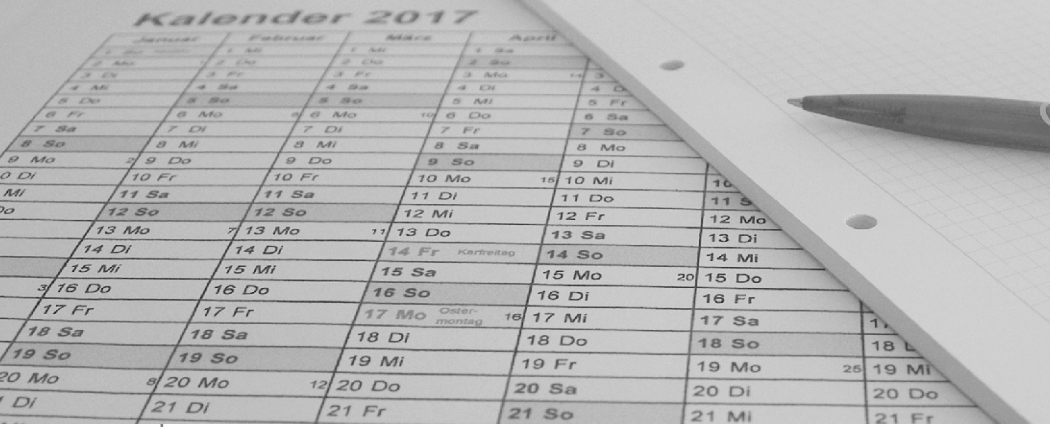 Kalender 2017
Januar Februar März April
1 1 Mi 1 Mi 1 Sa
2 Mo 2 Do 2 Do 2 So
3 Di 3 Fr 3 Fr 3 Mo 14 3
4 Mi 4 Sa 4 Sa 4 Di 4 D
5 Do 5 So 5 So 5 Mi 5 Fr
6 Fr 6 Mo 6 Mo 10 6 Do 6 Sa
7 Sa 7 Di 7 Di 7 Fr 7 So
8 So 8 Mi 8 Mi 8 Sa 8 Mo
9 Mo 2 9 Do 9 Do 9 So 9 Di
0 Di 10 Fr 10 Fr 10 Mo 15 10 Mi 10
Mi 11 Sa 11 Sa 11 Di 11 Do 11 S
Do 12 So 12 So 12 Mi 12 Fr 12 Mo
13 Mo 7 13 Mo 11 13 Do 13 Sa 13 Di
14 Di 14 Di 14 Fr Karfreitag 14 So 14 Mi
15 Mi 15 Mi 15 Sa 15 Mo 20 15 Do
3 16 Do 16 Do 16 So 16 Di 16 Fr
17 Fr 17 Fr 17 Mo Oster-montag 16 17 Mi 17 Sa 17
18 Sa 18 Sa 18 Di 18 Do 18 So 18
19 So 19 So 19 Mi 19 Fr 19 Mo 25 19 Mi
20 Mo 8 20 Mo 12 20 Do 20 Sa 20 Di 20 Do
Di 21 Di 21 Fr 21 So 21 Mi 21 Fr